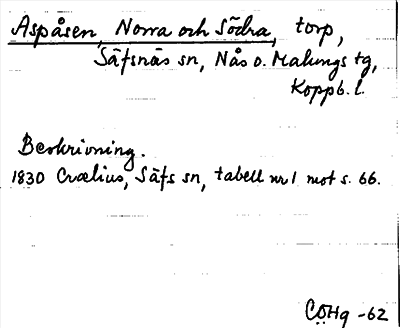 Aspåsen, Norra och Södra, torp,
Säfsnäs sn, Nås o. Malungs tg,
Koppb. l.
Beskrivning.
1830 Crælius, Säfs sn, tabell nr 1 mot s. 66.
CÖHg -62